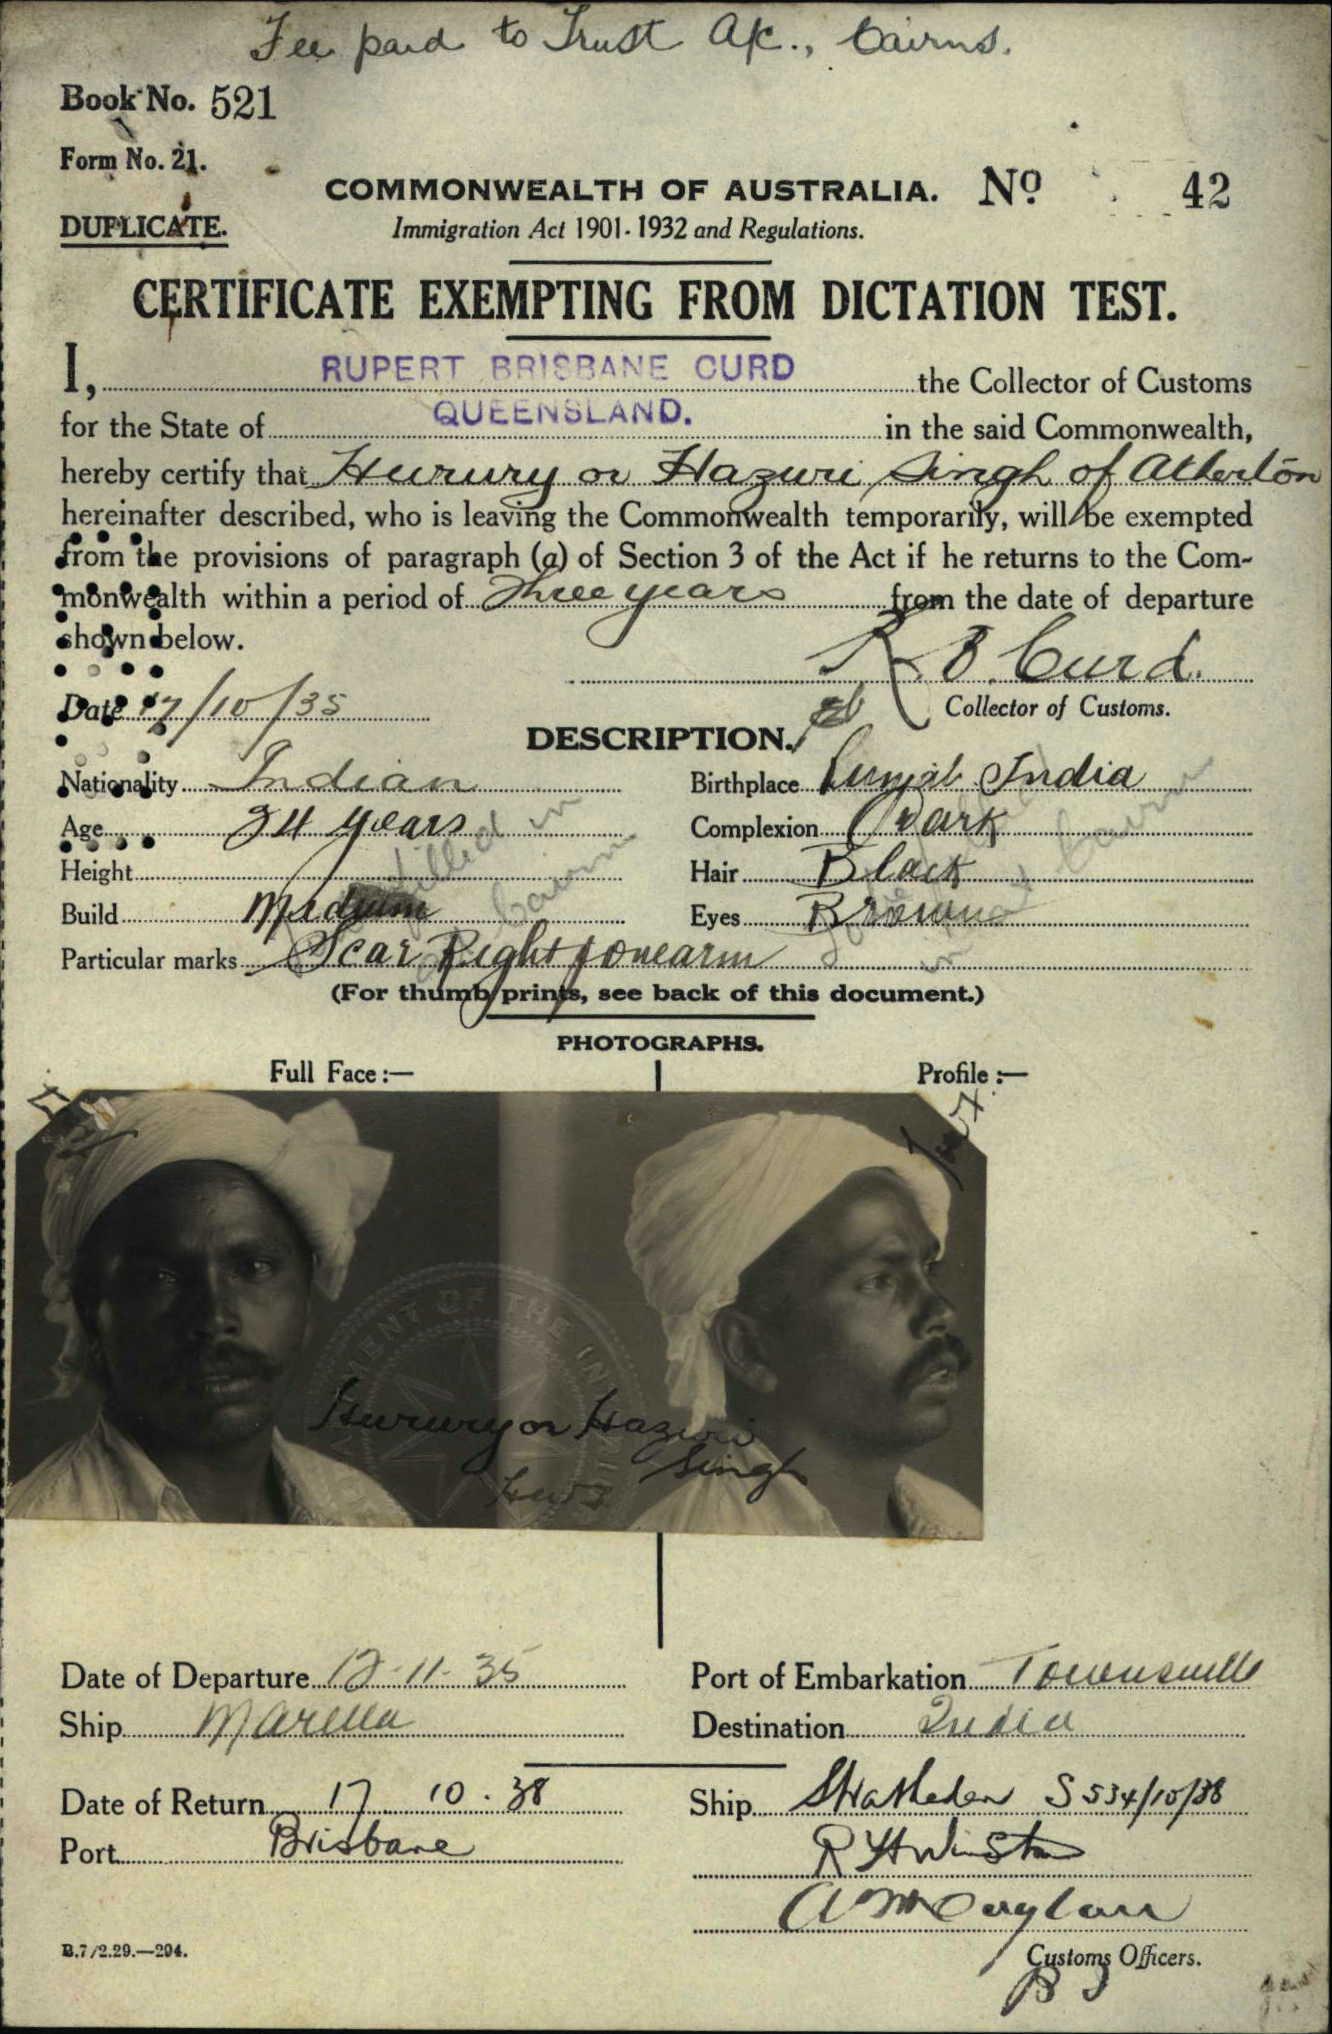 Fee paid to Trust A/c., Cairns.
Book No. 521
Form No. 21.
COMMONWEALTH OF AUSTRALIA. No 42
DUPLICATE.
Immigration Act 1901-1932 and Regulations.
CERTIFICATE EXEMPTING FROM DICTATION TEST.
I, RUPERT BRISBANE CURD the Collector of Customs
for the State of QUEENSLAND. in the said Commonwealth,
hereby certify that Hurury or Hazuri Singh of Atherton
hereinafter described, who is leaving the Commonwealth temporarily, will be exempted
from the provisions of paragraph (a) of Section 3 of the Act if he returns to the Com-
monwealth within a period of Three years from the date of departure
shown below.
R B. Curd.
Date 17/10/35
Collector of Customs.
DESCRIPTION.
Nationality Indian
Birthplace Punjab India
Age 34 years
Complexion Dark
Height
Hair Black
Build Medium
Eyes Brown
Particular marks Scar Right forearm
(For thumb prints, see back of this document.)
PHOTOGRAPHS.
Full Face :—
Profile :—
Hurury or Hazuri
Singh
Date of Departure 12-11-35
Port of Embarkation Townsville
Ship Marella
Destination India
Date of Return 17.10.38
Ship Stratheden S534/10/38
Port Brisbane
B.7/2.29.—294.
Customs Officers.